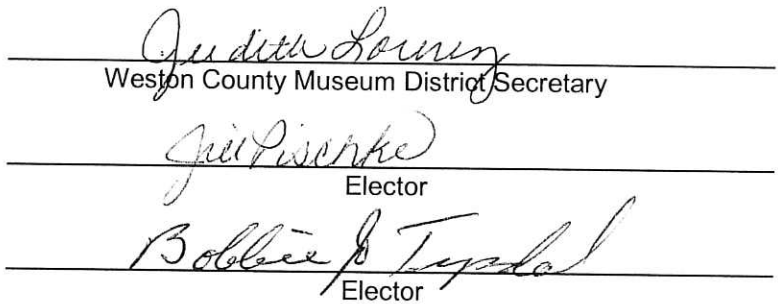 Judith
Weston County Museum District Secretary
Jill Pischke
Elector
Bobbie Jo
Elector